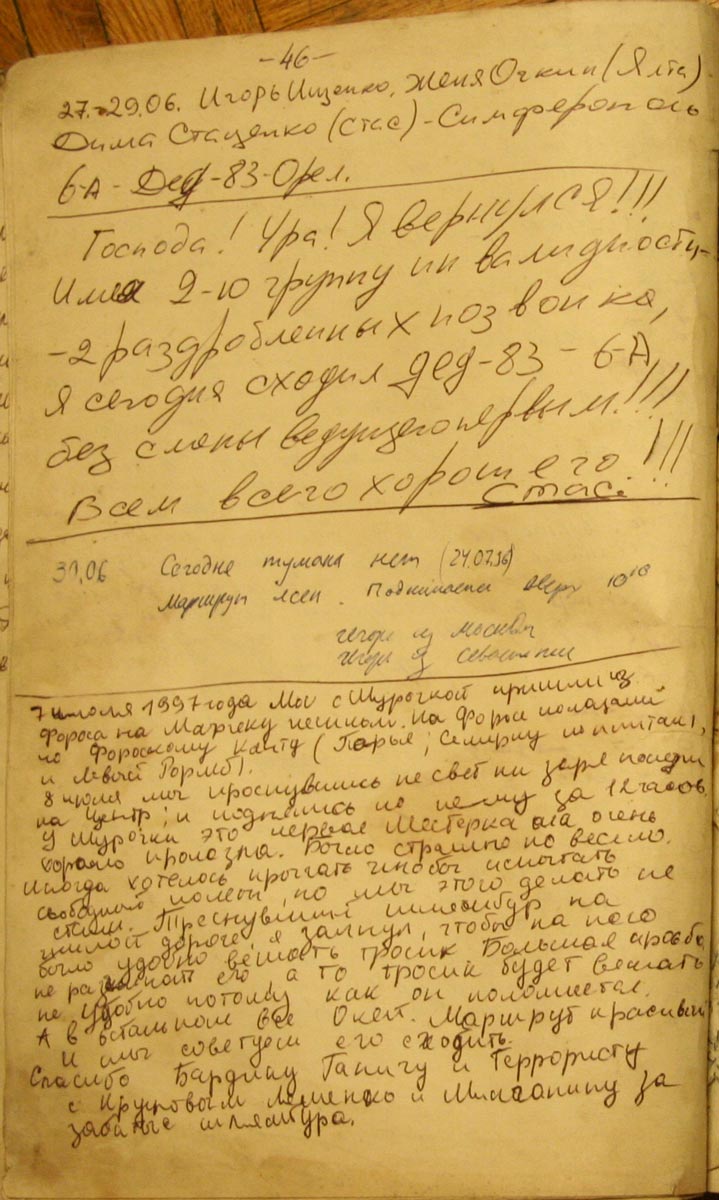 -46-
27.-29.06. Игорь Ищенко, Женя Очкин (Ялта)
Дима Стаценко (Стас) - Симферополь
6-А - Дед-83-Орел.
Господа! Ура! Я вернулся!!!
Имея 2-ю группу инвалидности-
-2 раздробленных позвонка,
я сегодня сходил Дед-83 - 6-А,
без слепы ведущего первым!!!
Всем всего хорошего!!!
Стас.
30.06 Сегодня тумана нет (24.07.96)
Маршрут ясен. Поднимаемся вверх 10
из Москвы
из
7 июля 1997 года Мы с Шурочкой пришли из
Фороса на Мачеку пешком. На Форосе полазали
по Форосскому Канту (
и Левый ).
8 июля мы проснувшись не свет ни заря полезли
на Центр, и поднялись по нему за 12 часов.
У Шурочки это первая Шестерка она очень
хорошо пролазна. Было страшно но весело.
Иногда хотелось прыгать чтобы испытать
свободный полет, но мы этого делать не
стали. Треснувший шлямбур на
дороге, я загнул, чтобы на него
было удобно вешать тросик Большая просьба
не разгибать его, а то тросик будет вешать
не удобно потому как он поломается.
А в остальном все Окей. Маршрут красивый
И мы советуем его сходить.
Спасибо Бардину Ганичу и Террористу
с Круповым Лишенко и за
забитые шлямбура.